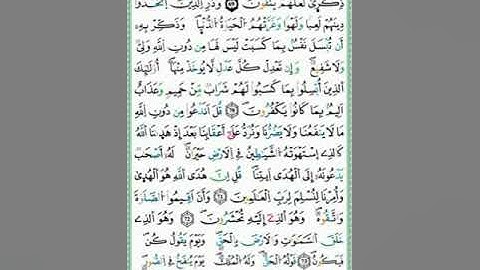 ذِكْرِىٰ لَعَلَّهُمْ يَتَّقُونَۖ وَذَرِ اِ۬لذِينَ اَ۪تَّخَذُواْ
دِينَهُمْ لَعِباٗ وَلَهْواٗ وَغَرَّتْهُمُ اُ۬لْحَيَوٰةُ اُ۬لدُّنْياۖ وَذَكِّرْ بِهِۦٓ
أَن تُبْسَلَ نَفْسُۢ بِمَا كَسَبَتْ لَيْسَ لَهَا مِن دُونِ اِ۬للَّهِ وَلِيّٞ
وَلَا شَفِيعٞۖ وَإِن تَعْدِلْ كُلَّ عَدْلٖ لَّا يُوخَذْ مِنْهَآۖ أُوْلَٰٓئِكَ
اَ۬لذِينَ أُبْسِلُواْ بِمَا كَسَبُواْ لَهُمْ شَرَابٞ مِّنْ حَمِيمٖ وَعَذَابٌ
اَلِيمُۢ بِمَا كَانُواْ يَكْفُرُونَۖ قُلَ اَنَدْعُواْ مِن دُونِ اِ۬للَّهِ
مَا لَا يَنفَعُنَا وَلَا يَضُرُّنَا وَنُرَدُّ عَلَىٰٓ أَعْقَابِنَا بَعْدَ إِذْ هَدَىٰنَا اَ۬للَّهُ
كَالذِے اِ۪سْتَهْوَتْهُ اُ۬لشَّيَٰطِينُ فِے اِ۬لَارْضِ حَيْرَانَۖ لَهُۥٓ أَصْحَٰبٞ
يَدْعُونَهُۥٓ إِلَى اَ۬لْهُدَى اَ۪يتِنَاۖ قُلِ اِنَّ هُدَى اَ۬للَّهِ هُوَ اَ۬لْهُدَىٰۖ
وَأُمِرْنَا لِنُسْلِمَ لِرَبِّ اِ۬لْعَٰلَمِينَۖ وَأَنَ اَقِيمُواْ اُ۬لصَّلَوٰةَ
وَاتَّقُوهُۖ وَهُوَ اَ۬لذِےٓ إِلَيْهِ تُحْشَرُونَۖ وَهُوَ اَ۬لذِے
خَلَقَ اَ۬لسَّمَٰوَٰتِ وَالَارْضَ بِالْحَقِّۖ وَيَوْمَ يَقُولُ كُن
فَيَكُونُۖ قَوْلُهُ اُ۬لْحَقُّۖ وَلَهُ اُ۬لْمُلْكُۖ يَوْمَ يُنفَخُ فِے اِ۬لصُّورِۖ